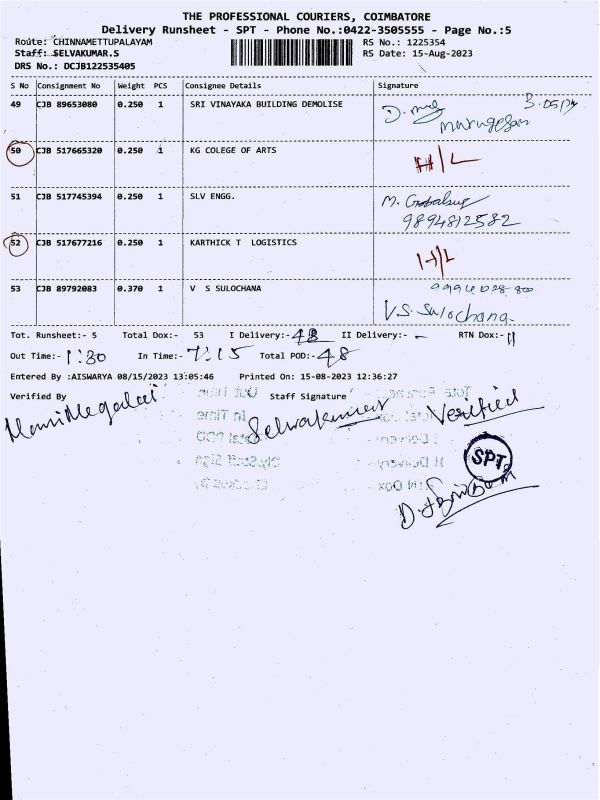 THE PROFESSIONAL COURIERS, COIMBATORE
Delivery Runsheet - SPT - Phone No.:0422-3505555 - Page No.:5
Route: CHINNAMETTUPALAYAM RS No.: 1225354
Staff: SELVAKUMAR.S RS Date: 15-Aug-2023
DRS No.: DCJB122535405
S No Consignment No Weight PCS Consignee Details Signature
49 CJB 89653080 0.250 1 SRI VINAYAKA BUILDING DEMOLISE
Murugesan
50 CJB 517665320 0.250 1 KG COLEGE OF ARTS H/L
51 CJB 517745394 0.250 1 SLV ENGG. M.
9894812582
52 CJB 517677216 0.250 1 KARTHICK T LOGISTICS H/L
53 CJB 89792083 0.370 1 V S SULOCHANA
V.S. Sulochana
Tot. Runsheet:- 5 Total Dox:- 53 I Delivery:- 48 II Delivery:- - RTN Dox:-
Out Time:- 1:30 In Time:- 7:15 Total POD:- 48
Entered By :AISWARYA 08/15/2023 13:05:46 Printed On: 15-08-2023 12:36:27
Verified By Staff Signature
Selvakumar Verified
SPT